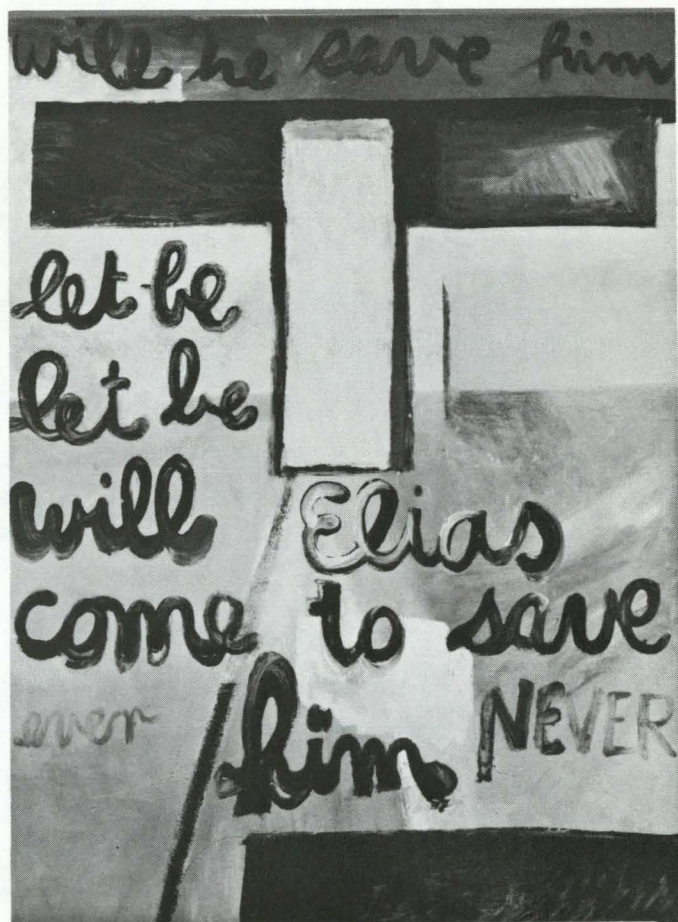 will he save him
let be
let be
will Elias
come to save
ever him NEVER